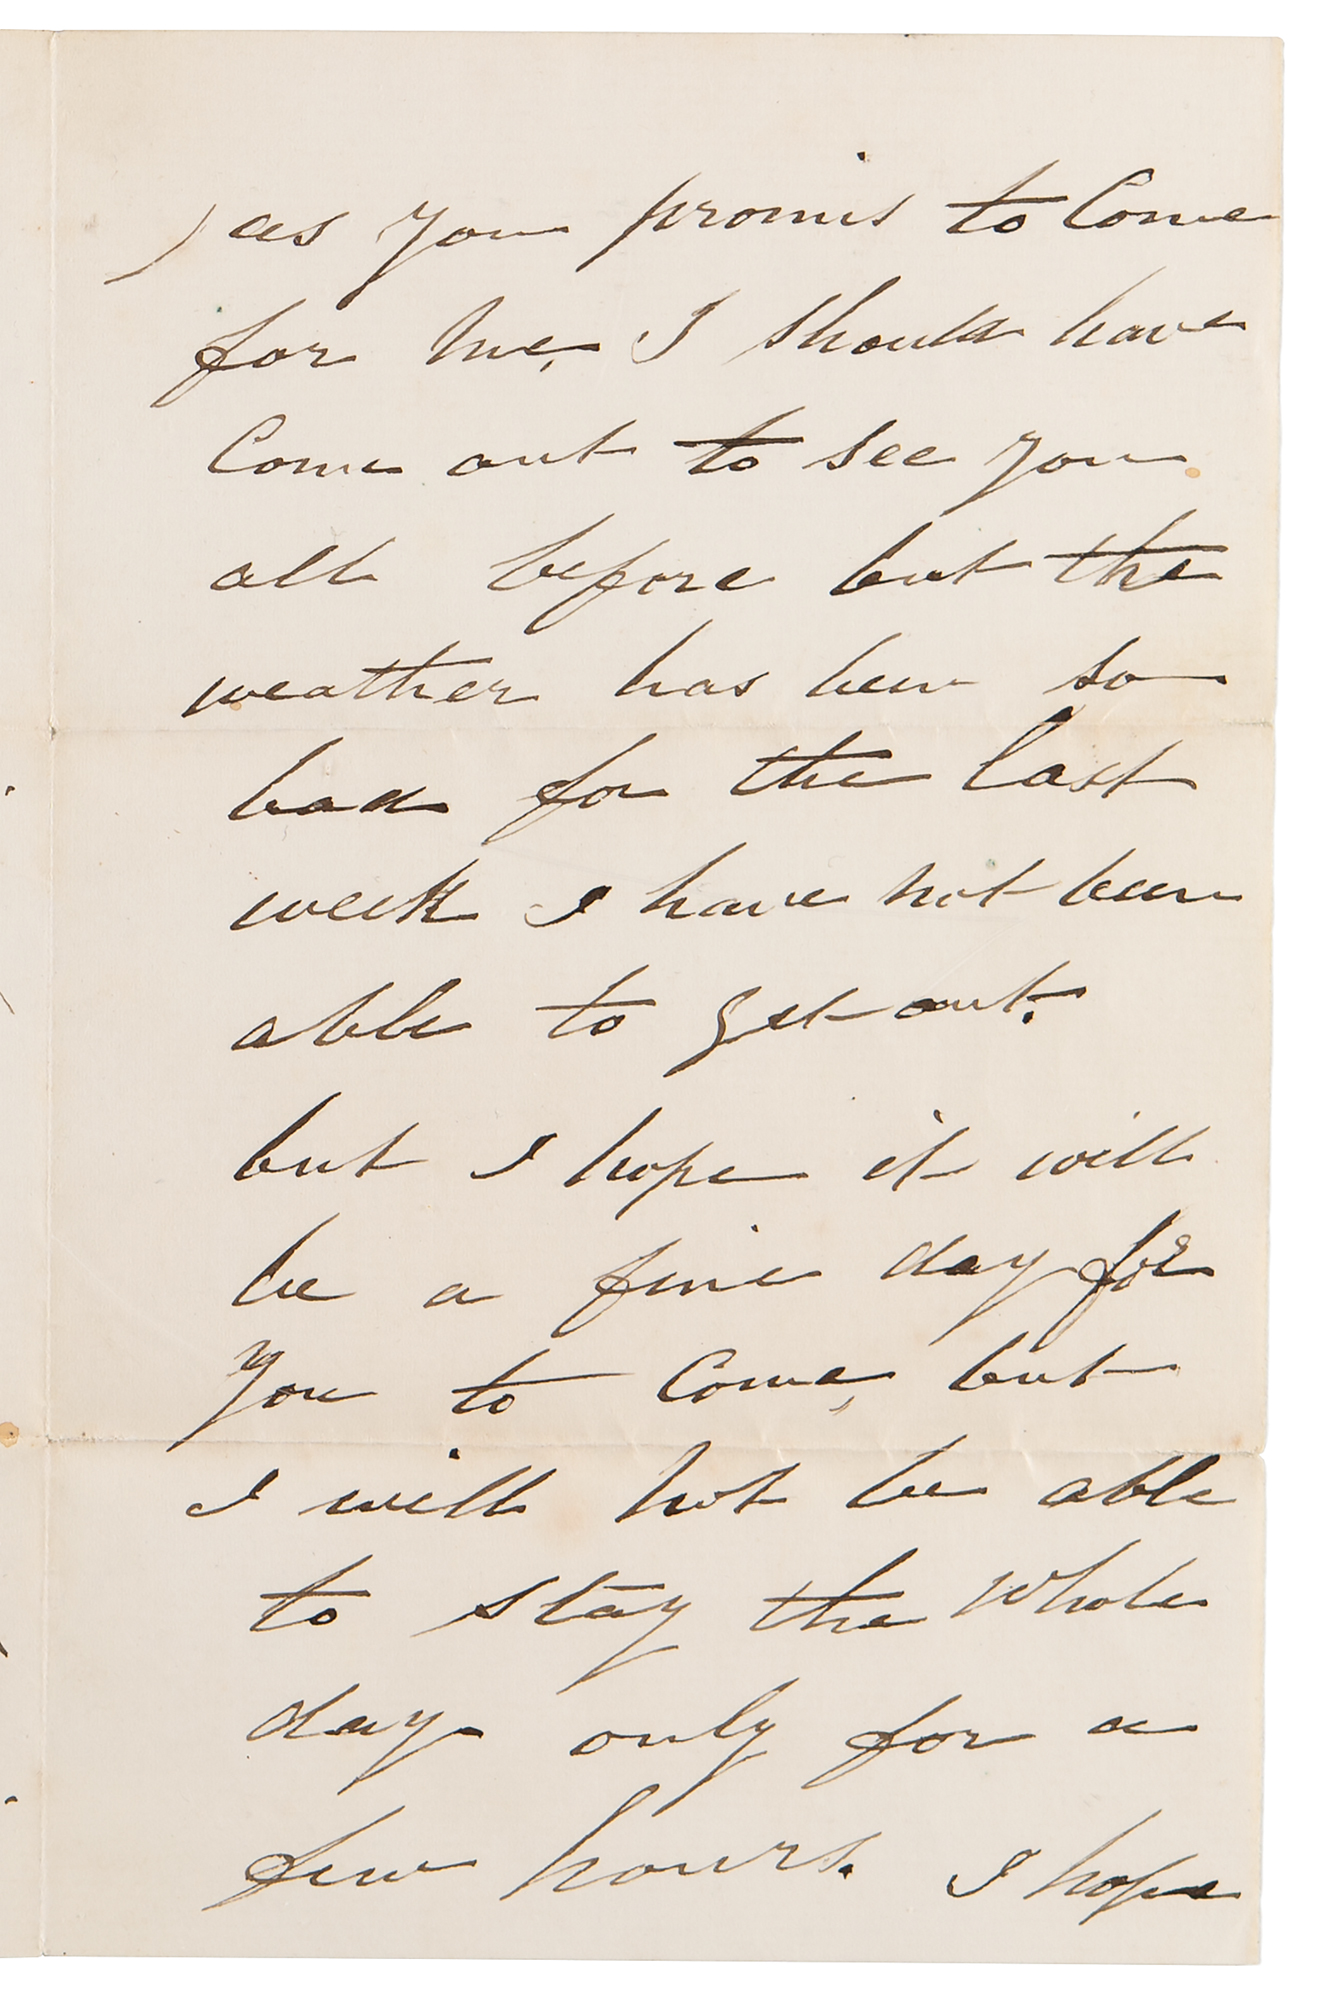 as you promis to Come
for me, I should have
Come out to see you
all before but the
weather has been so
bad for the last
week I have not been
able to get out.
but I hope it will
be a fine day for
you to Come, but
I will not be able
to stay the whole
day only for a
few hours. I hope